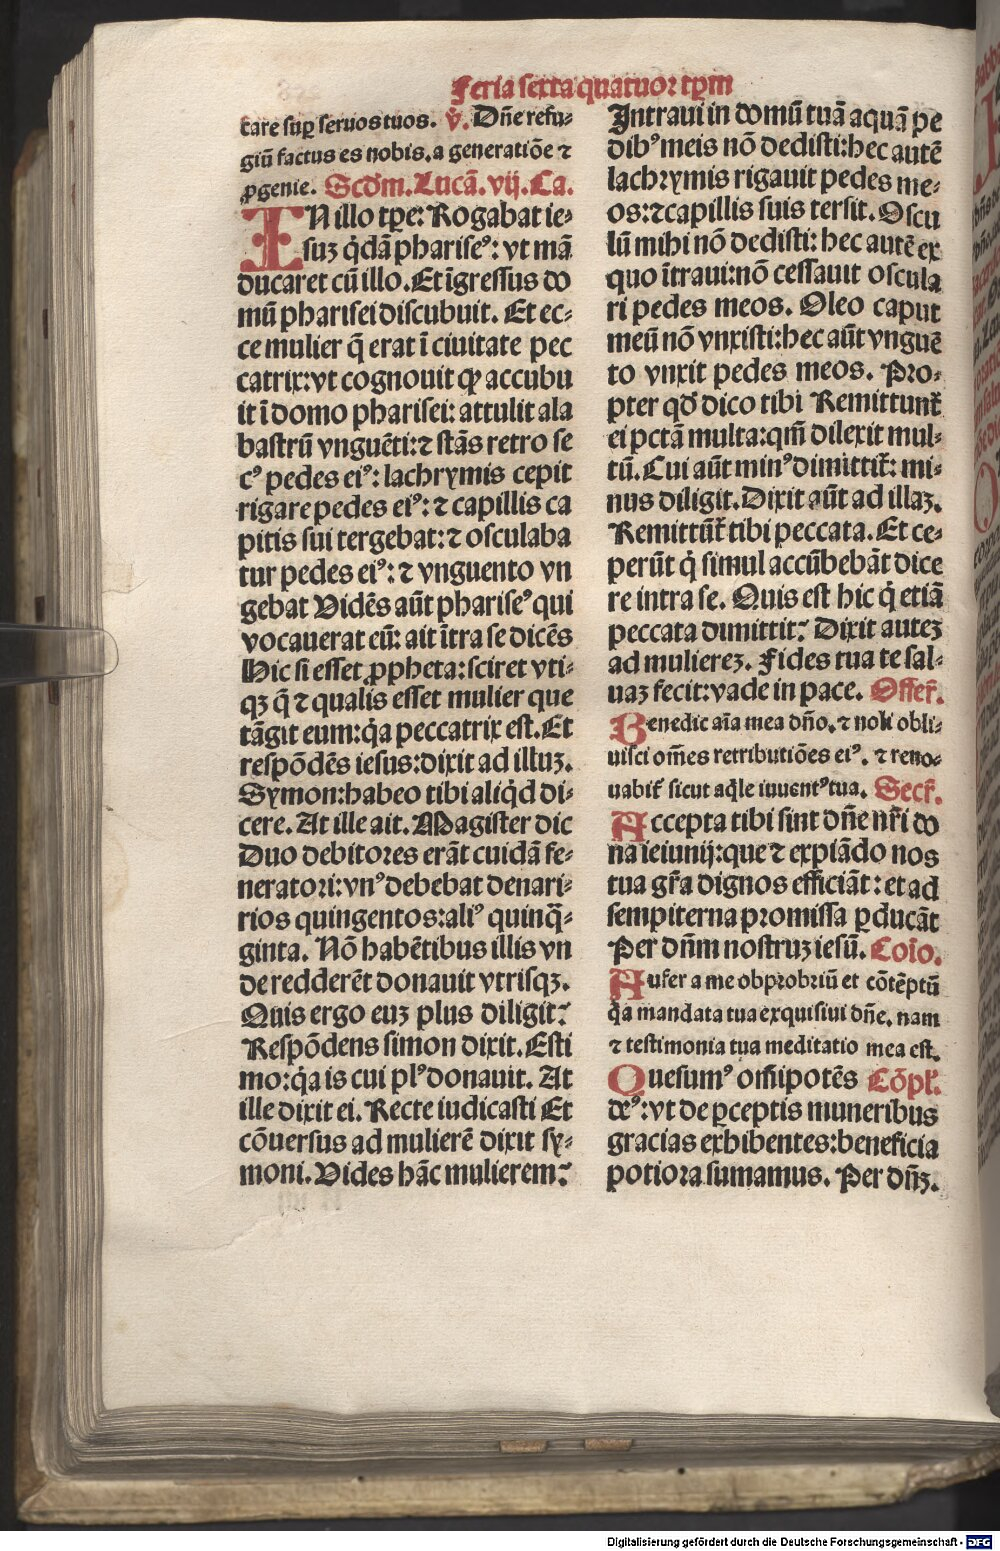 Feria sexta quatuor tp̄m
care sup̲ seruos tuos. v̄. Dn̄e refu⸗
giū factus es nobis. a generatiōe ⁊
ꝓgenie. Scd̄m. Lucā. vij. Ca.
IN illo tp̄e: Rogabat ie⸗
suꝫ q̇dā pharise⁹: vt mā
ducaret cū illo. Et īgressus do
mū pharisei discubuit. Et ec⸗
ce mulier q̄ erat ī ciuitate pec
catrix: vt cognouit ꝙ accubu
it ī domo pharisei: attulit ala
bastrū vnguēti: ⁊ stās retro se
c⁹ pedes ei⁹: lachrymis cepit
rigare pedes ei⁹: ⁊ capillis ca
pitis sui tergebat: ⁊ osculaba
tur pedes ei⁹: ⁊ vnguento vn
gebat Vidēs aūt pharise⁹ qui
vocauerat eū: ait ītra se dicēs
Hic si esset ꝓpheta: sciret vti⸗
qꝫ q̄ ⁊ qualis esset mulier que
tāgit eum: q̇a peccatrix est. Et
respōdēs iesus: dixit ad illuꝫ.
Symon: habeo tibi aliq̇d di⸗
cere. At ille ait. Magister dic
Duo debitores erāt cuidā fe⸗
neratori: vn⁹ debebat denari⸗
rios quingentos: ali⁹ quinq̄⸗
ginta. Nō habētibus illis vn
de redderēt donauit vtrisqꝫ.
Quis ergo euꝫ plus diligit?
Respōdens simon dixit. Esti
mo: q̇a is cui pl⁹ donauit. At
ille dixit ei. Recte iudicasti Et
cōuersus ad mulierē dixit sy⸗
moni. Vides hāc mulierem?
Intraui in domū tuā aquā pe
dib⁹ meis nō dedisti: hec autē
lachrymis rigauit pedes me⸗
os: ⁊ capillis suis tersit. Oscu
lū mihi nō dedisti: hec autē ex
quo ītraui: nō cessauit oscula
ri pedes meos. Oleo caput
meū nō vnxisti: hec aūt vnguē
to vnxit pedes meos. Pro⸗
pter qd̄ dico tibi Remittunt̄
ei pctā multa: qm̄ dilexit mul⸗
tū. Cui aūt min⁹ dimittit̄: mi⸗
nus diligit. Dixit aūt ad illaꝫ.
Remittūt̄ tibi peccata. Et ce⸗
perūt q̇ simul accūbebāt dice
re intra se. Quis est hic q̇ etiā
peccata dimittit? Dixit auteꝫ
ad muliereꝫ. Fides tua te sal⸗
uaꝫ fecit: vade in pace. Offer̄.
Benedic aīa mea dn̄o. ⁊ noli obli⸗
uisci om̄es retributiōes ei⁹. ⁊ reno⸗
uabit̄ sicut aq̇le iuuent⁹ tua. Secr̄.
Accepta tibi sint dn̄e nr̄i do
na ieiunij: que ⁊ expiādo nos
tua gr̄a dignos efficiāt: et ad
sempiterna promissa p̲ducāt
Per dn̄m nostruꝫ iesū. Coīo.
Aufer a me obprobriū et cōtēptū
q̇a mandata tua exquisiui dn̄e. nam
⁊ testimonia tua meditatio mea est.
Quesum⁹ om̄ipotēs Cōpl̄.
de⁹: vt de p̲ceptis muneribus
gracias exhibentes: beneficia
potiora sumamus. Per dn̄ꝫ.
Digitalisierung gefördert durch die Deutsche Forschungsgemeinschaft - DFG